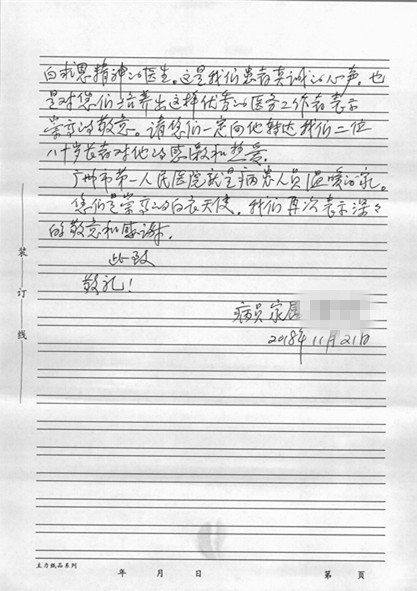 白求恩精神的医生。这是我们患者真诚的心声。也
是对您们培养出这样优秀的医务工作者表示
崇高的敬意。请您们一定向他转达我们二位
八十岁长者对他的感激和热爱。
广州市第一人民医院就是病患人员温暖的家。
您们是崇高的白衣天使。我们再次表示深々
的敬意和感谢。
此致
敬礼!
病员家属
2018年11月21日
装订线
主力纸品系列
年 月 日
第 页